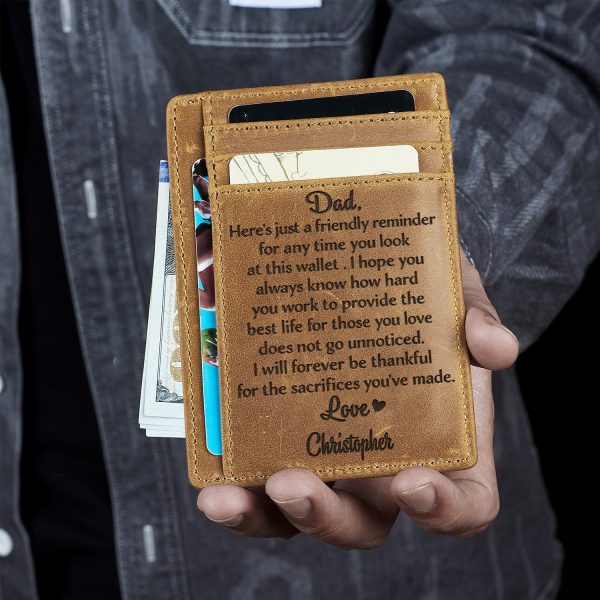 Dad,
Here's just a friendly reminder
for any time you look
at this wallet . I hope you
always know how hard
you work to provide the
best life for those you love
does not go unnoticed.
I will forever be thankful
for the sacrifices you've made.
Love ♥
Christopher